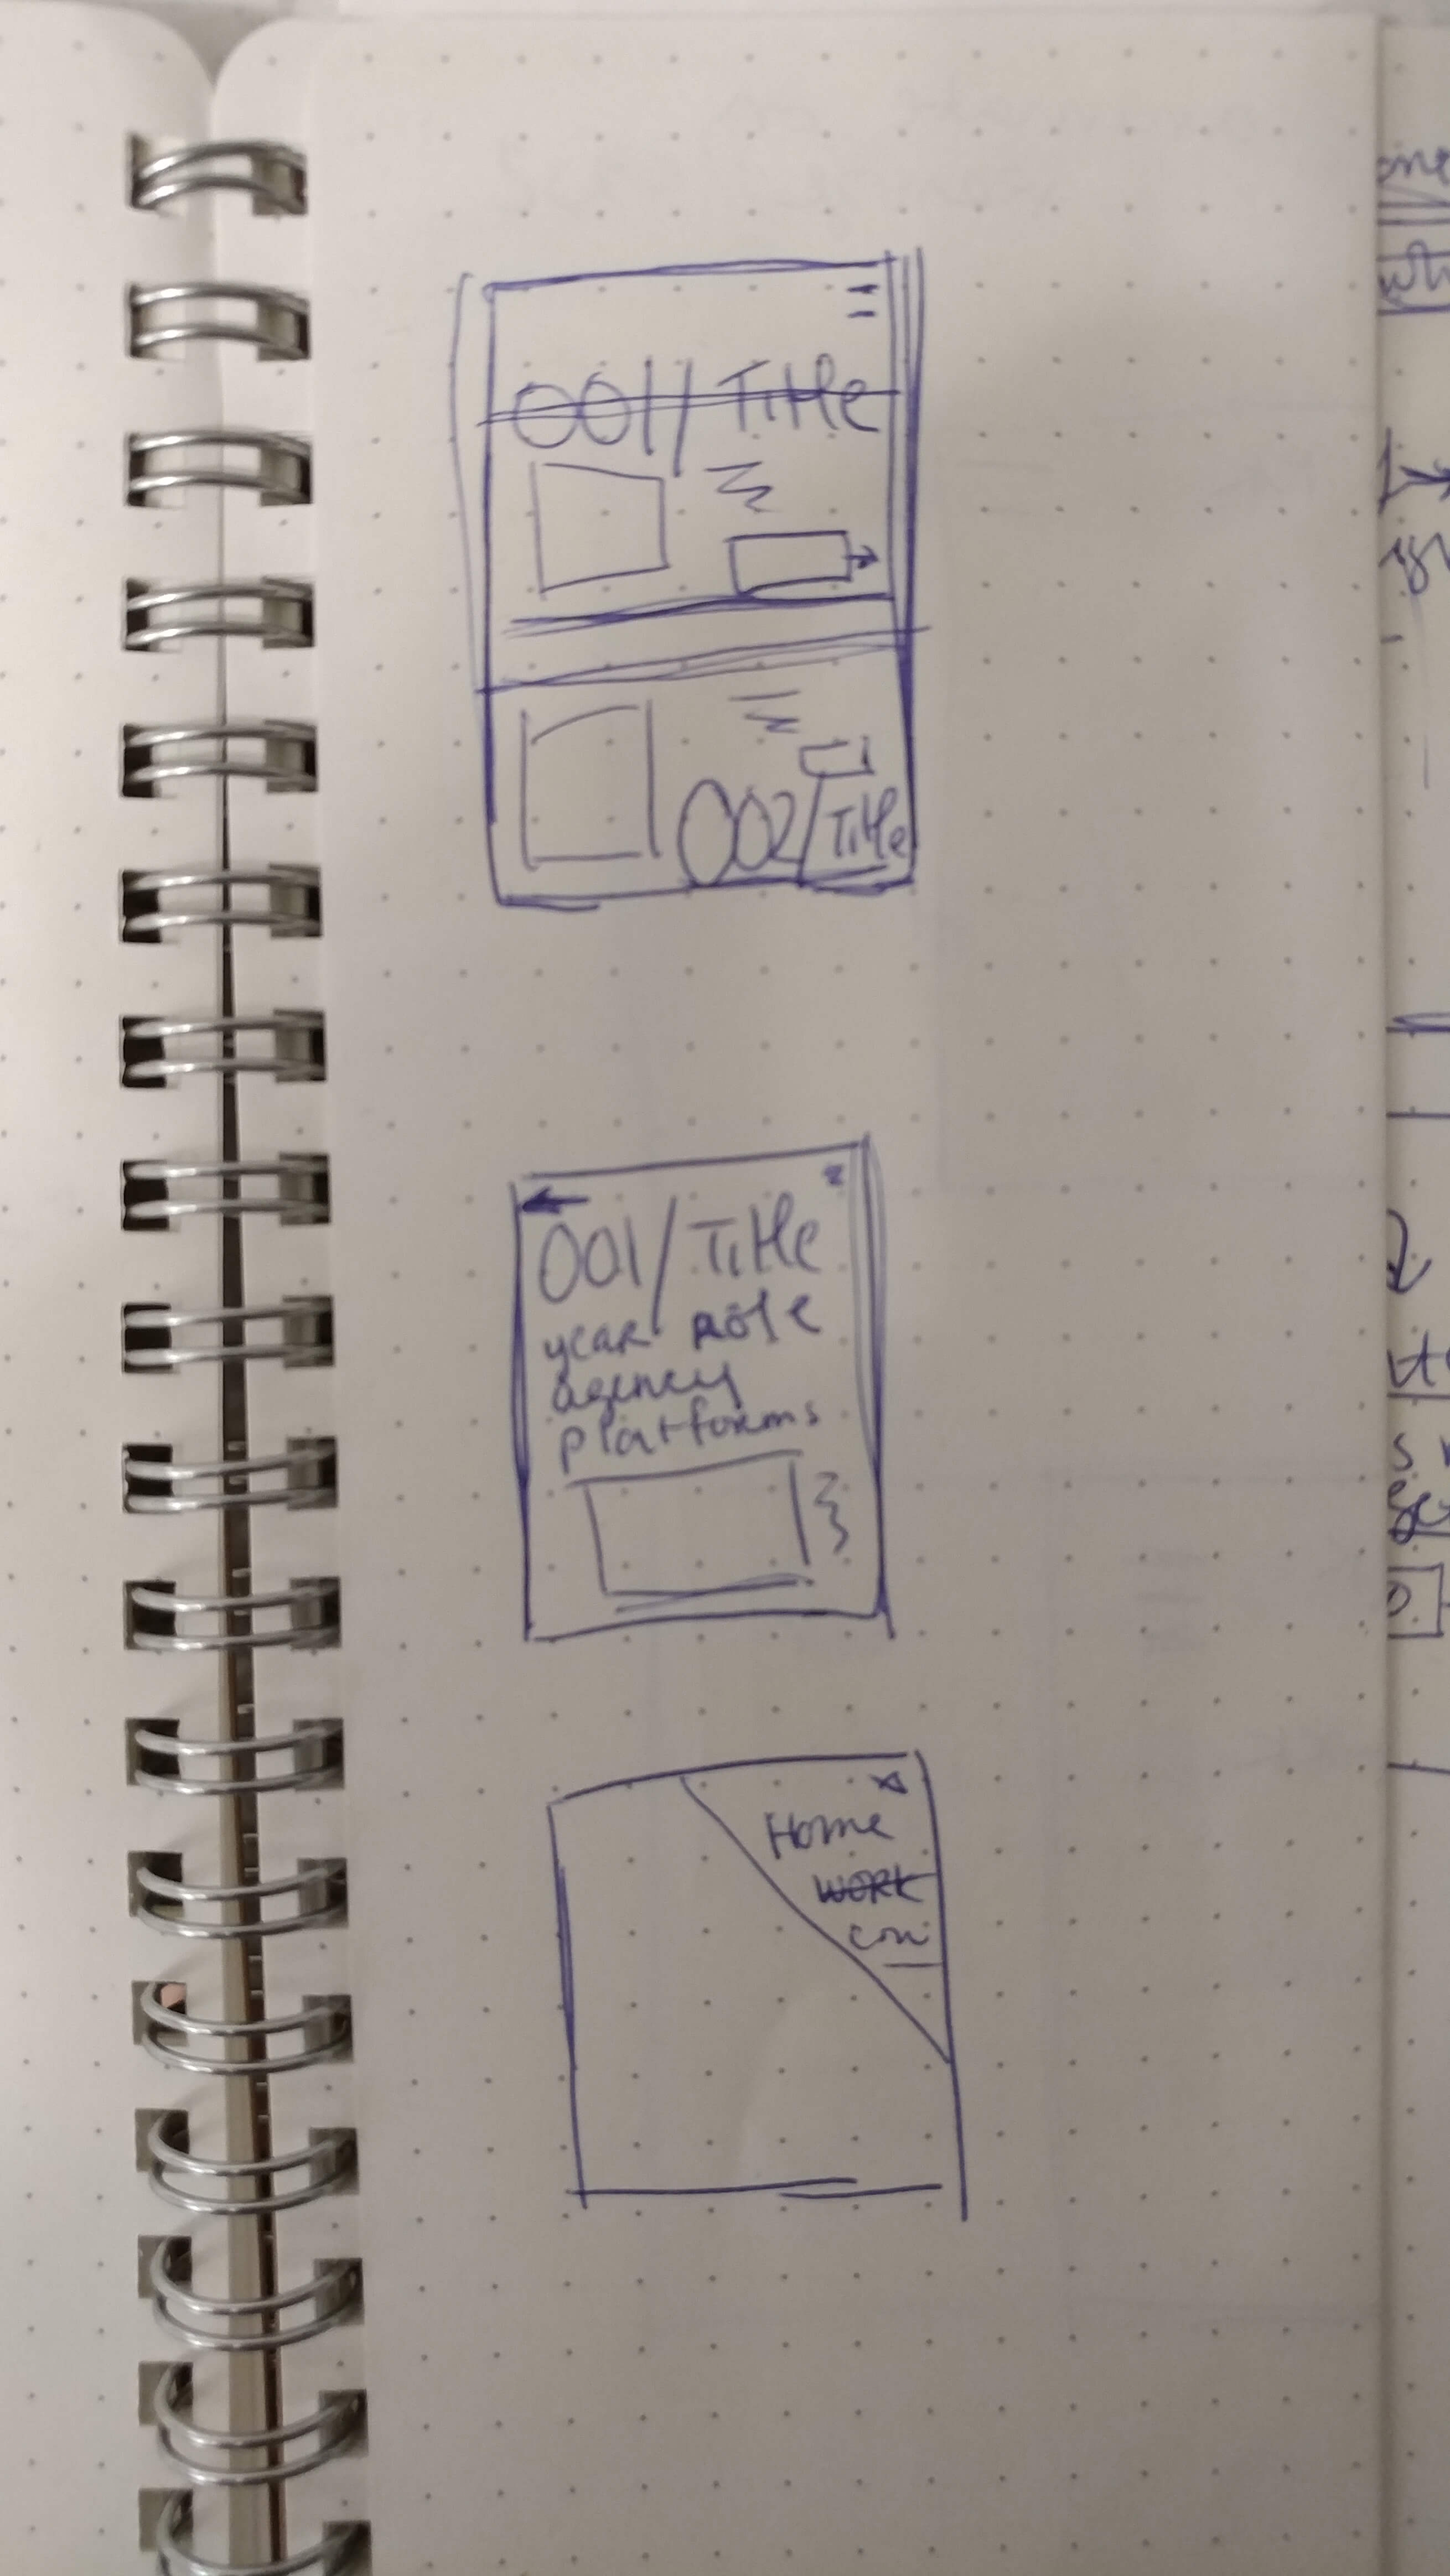 001/Title
002/Title
001/Title
year role
agency
platforms
Home
WORK
con